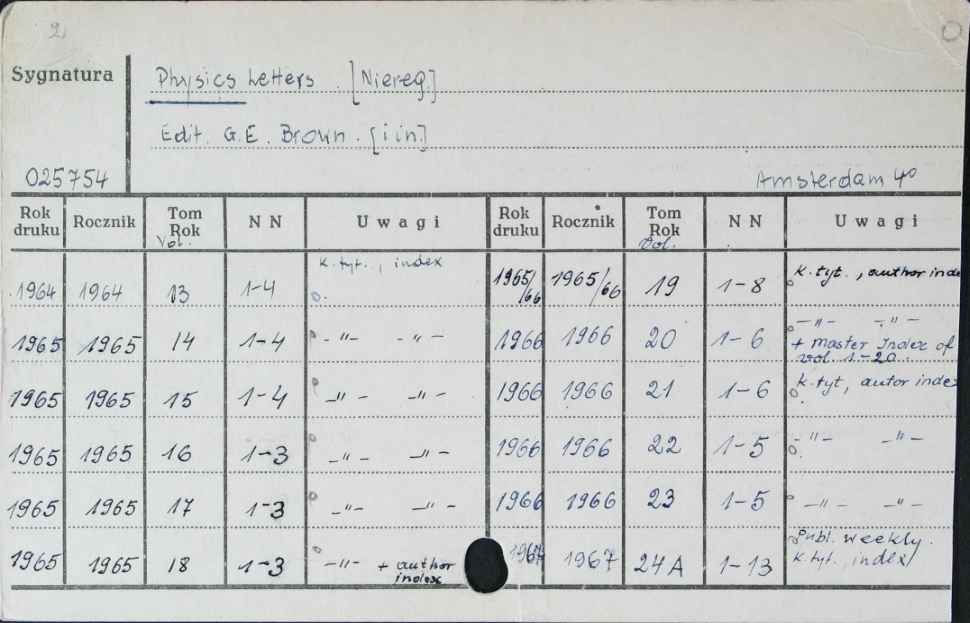 2
Sygnatura
Physics Letters. [Niereg.]
Edit. G.E. Brown. [i in.]
025754
Amsterdam 4°
Rok druku Rocznik Tom Rok Vol. N N Uwagi Rok druku Rocznik Tom Rok Vol. N N Uwagi
1964 1964 13 1-4 k. tyt., index 1965/66 1965/66 19 1-8 k. tyt., author inde
1965 1965 14 1-4 -"- -"- 1966 1966 20 1-6 -"- -"-
+ master Index of
vol. 1-20.
1965 1965 15 1-4 -"- -"- 1966 1966 21 1-6 k. tyt, autor index
1965 1965 16 1-3 -"- -"- 1966 1966 22 1-5 -"- -"-
1965 1965 17 1-3 -"- -"- 1966 1966 23 1-5 -"- -"-
1965 1965 18 1-3 -"- + author index 1967 1967 24A 1-13 Publ. weekly.
k. tyt., index